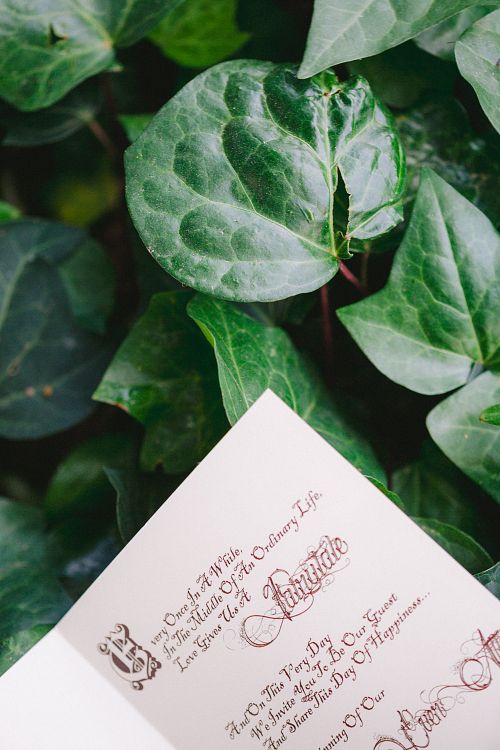 Every Once In A While,
In The Middle Of An Ordinary Life,
Love Gives Us A Fairytale
And On This Very Day
We Invite You To Be Our Guest
And Share This Day Of Happiness...
Of Our